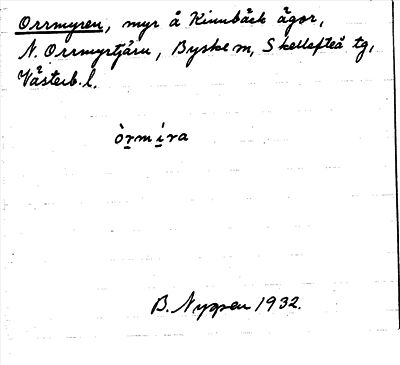 Orrmyren, myr å Kinnbäck ägor,
N. Orrmyrtjärn, Byske m, Skellefteå tg,
Västerb. l.
òrmíra
B. Nygren 1932.